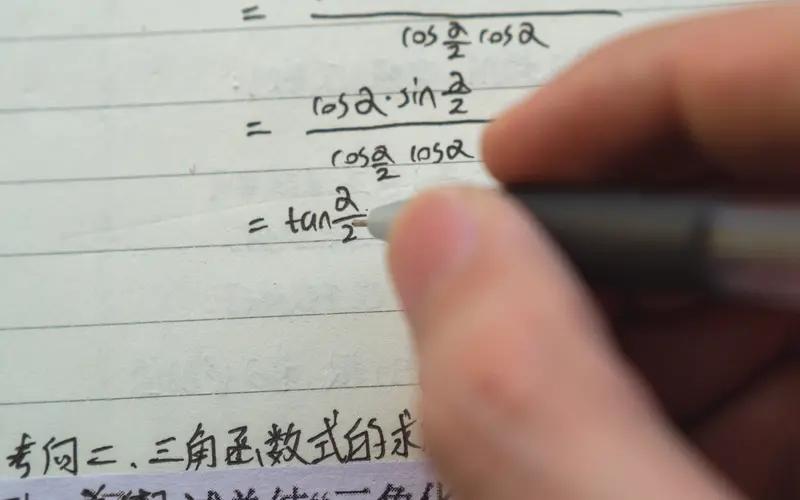 = cos α/2 cos α
= cos α · sin α/2 / cos α/2 cos α
= tan α/2
考向二、三角函数式的求